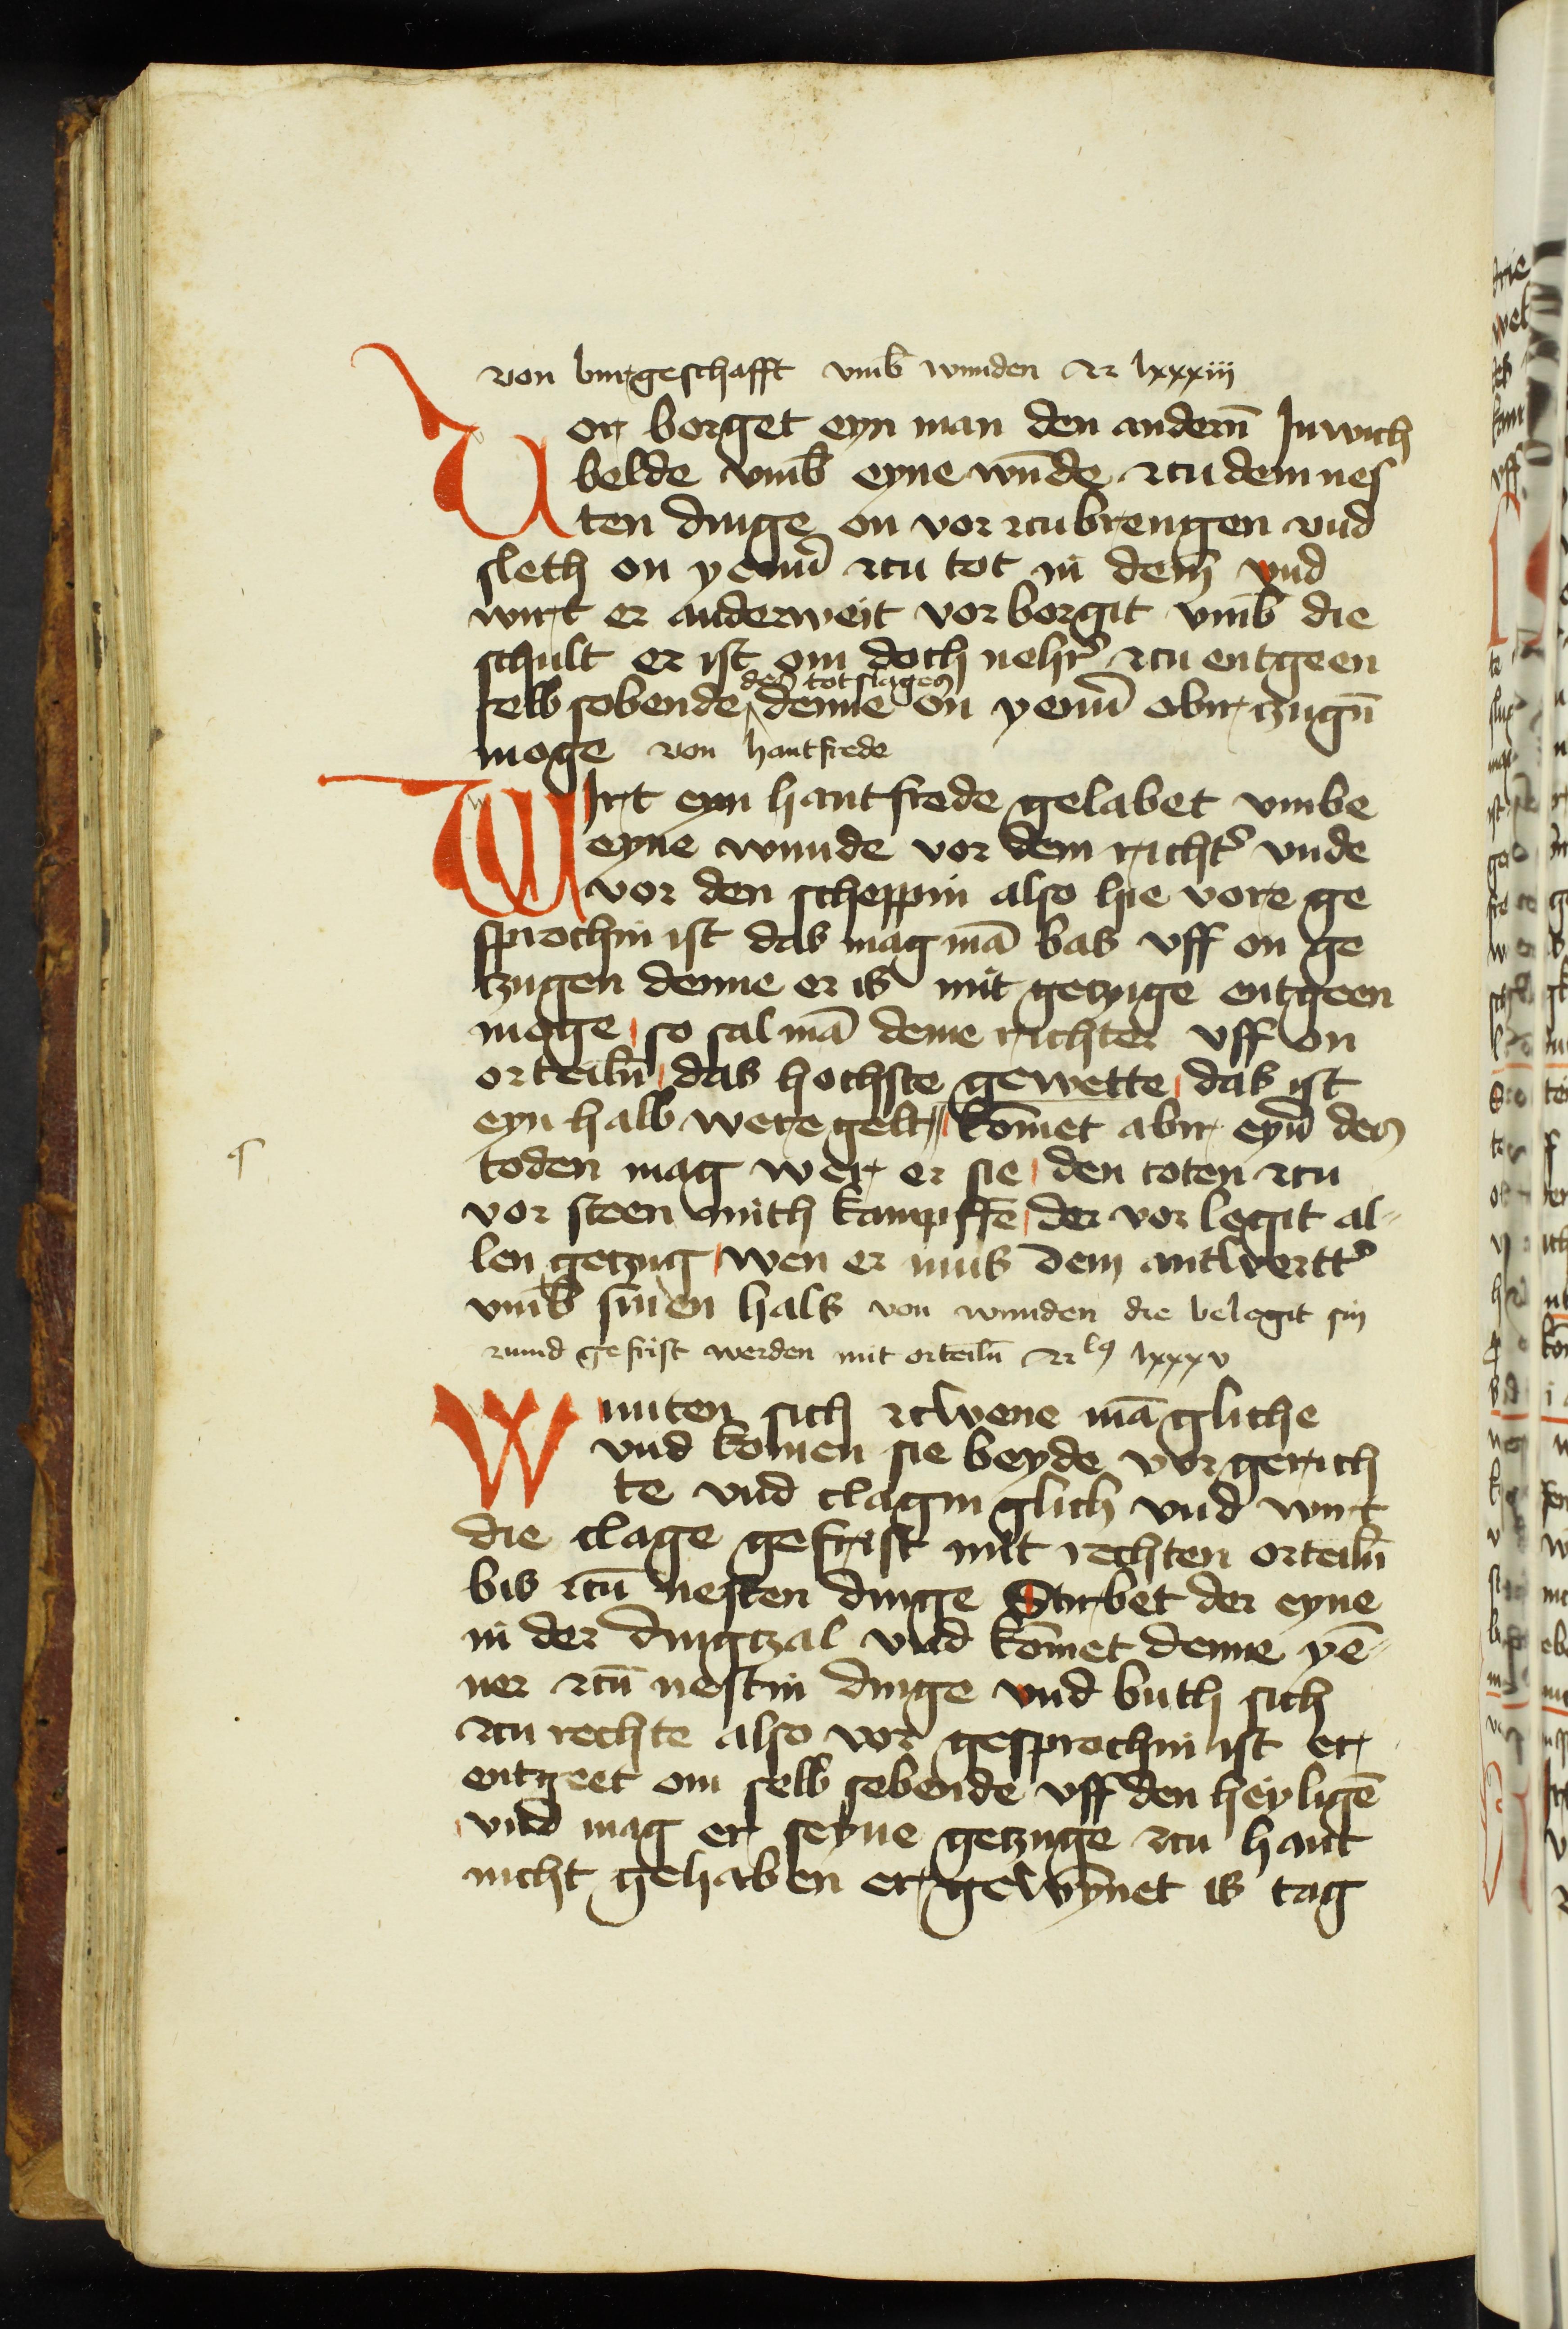 von burgeschafft vmb̄ wunden ꝛc lxxxiii
Vor borget eyn man den andern̄ Jn wich
belde vmb̄ eyne wūde zcu dem nes
ten dinge on vor zcubrengen vnd
sleth on yenn̄ zcu tot in dem̄ vnd
wirt er anderweit vor borgit vmb̄ die
schult er ist om doch neh'r zcu entgeen
des totslages
selb sobende denne on yenn̄ obir zugn̄
moge von hantfrede
WIrt eyn hantfrede gelabet vmbe
eyne wunde vor dem richt' vnde
vor den scheppin also hie vore ge
sprochin ist das mag mā bas vff on ge
tzugen denne er is mit getzuge entgeen
moge so sal mā deme richter vff on
orteiln̄ das hochste gewette das ist
eyn halb were gelt kōmet abir eyn̄ des
toden mag wer er sie den toten zcu
vor steen mith kampffe der vor legit al-
len getzug wen er mus dem antwertt'
vmb̄ sinen hals von wunden die belegit sin
vnnd gefrist werden mit orteiln̄ ꝛc lxxxv
Wunten sich zcwene mā gliche
vnd komen sie beyde vor gerich
te vnd clagin glich vnd wirt
die clage gefrist mit rechten orteiln̄
bis zcū nesten dinge Stirbet der eyne
in der dingtzal vnd kōmet denne yē-
ner zcū nestin dinge vnd buth sich
zcu rechte also vor gesprochin ist er
entgeet om selb sebende vff den heyligē
vnd mag er seyne getzuge zcu hant
nicht gehaben er gewynnet is tag